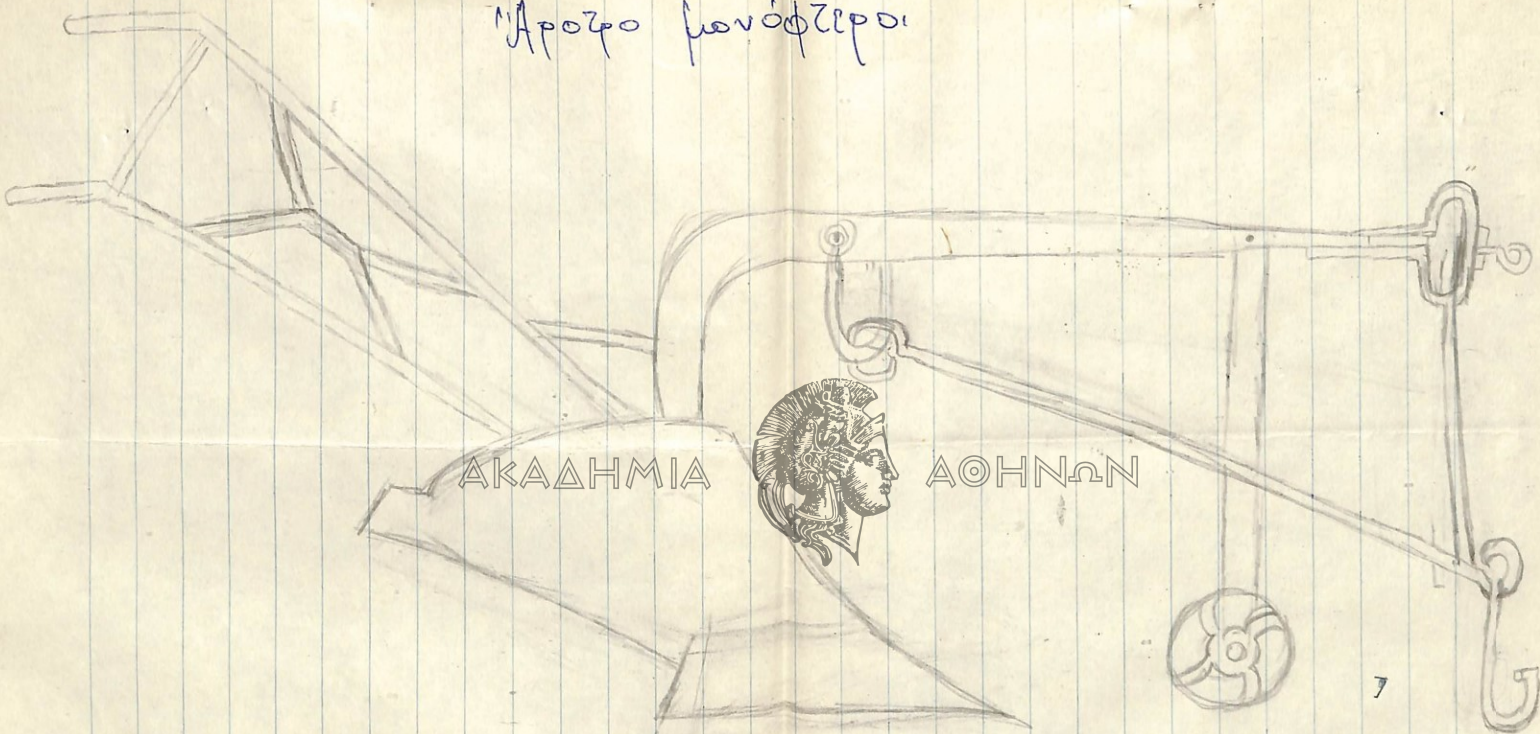 Ἄροτρο μονόφτερο
ΑΚΑΔΗΜΙΑ ΑΘΗΝΩΝ
7